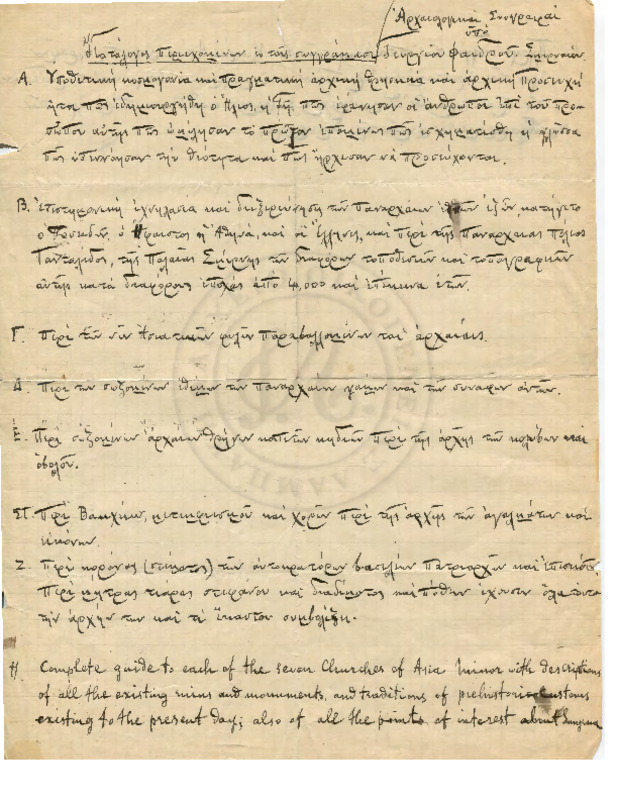 Ἀρχαιολογικαὶ Συγγραφαὶ
ὑπὸ
Κατάλογος περιεχομένων ἐν ταῖς συγγραφαῖς Γεωργίου Φαίδρου. Σμυρναίου
Α. Ὑποθετικὴ κοσμογονία καὶ πραγματικὴ ἀρχικὴ θρησκεία καὶ ἀρχικὴ προσευχὴ
ἤτοι πῶς ἐδημιουργήθη ὁ Ἥλιος, ἡ Γῆ, πῶς ἐφάνησαν οἱ ἄνθρωποι ἐπὶ τοῦ προ-
σώπου αὐτῆς πῶς ὡμίλησαν τὸ πρῶτον ἑπομένως πῶς ἐσχηματίσθη ἡ γλῶσσα
πῶς ὑπενόησαν τὴν θεότητα καὶ πῶς ἤρχισαν νὰ προσεύχονται.
Β. Ἐπιστημονικὴ ἰχνηλασία καὶ διεξερεύνησις τῶν παναρχαίων ἐθνῶν ἐξ ὧν κατήγετο
ὁ Ποσειδῶν, ὁ Ἥφαιστος ἡ Ἀθηνᾶ, καὶ οἱ Ἕλληνες, καὶ περὶ τῆς παναρχαίας πόλεως
Τανταλίδος, τῆς Παλαιᾶς Σμύρνης τῶν διαφόρων τοποθεσιῶν καὶ τοπογραφιῶν
αὐτῆς κατὰ διαφόρους ἐποχὰς ἀπὸ 4,000 καὶ ἐπέκεινα ἐτῶν.
Γ. Περὶ τῶν νῦν Ἀσιατικῶν φυλῶν παραβαλλομένων ταῖς ἀρχαίαις.
Δ. Περὶ τῶν σωζομένων ἐθίμων τῶν παναρχαίων γάμων καὶ τῶν συναφῶν αὐτῶν.
Ε. Περὶ σωζομένων ἀρχαίων θρήνων καὶ τῶν κηδειῶν περὶ τῆς ἀρχῆς τῶν κολύβων καὶ
ὀβολῶν.
ΣΤ. Περὶ Βακχείων, μετεμφιεσμοῦ καὶ χορῶν περὶ τῆς ἀρχῆς τῶν ἀγαλμάτων καὶ
εἰκόνων.
Ζ. Περὶ κορώνας (στέμματος) τῶν αὐτοκρατόρων βασιλέων Πατριαρχῶν καὶ ἐπισκόπων.
Περὶ μήτρας τιάρας στεφάνου καὶ διαδήματος καὶ πόθεν ἔχουσιν ὅλα ταῦτα
τὴν ἀρχὴν των καὶ τί ἕκαστον συμβολίζει.
Η. Complete guide to each of the seven Churches of Asia Minor with descriptions
of all the existing ruins and monuments, and traditions of prehistoric customs
existing to the present day; also of all the points of interest about Smyrna